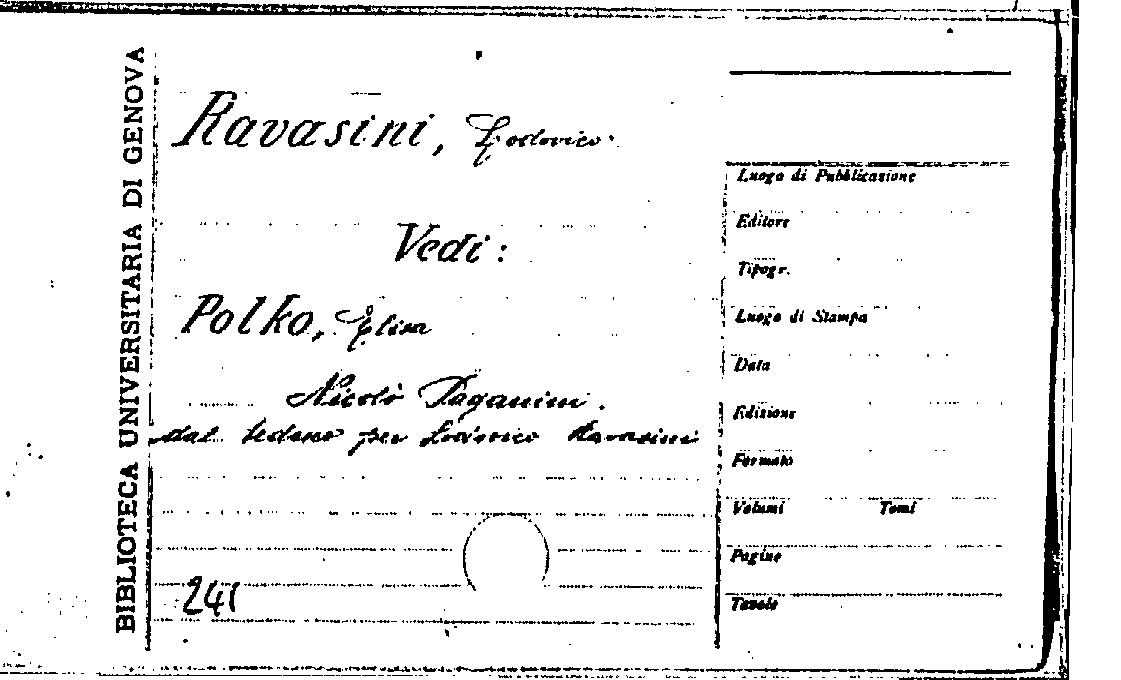 BIBLIOTECA UNIVERSITARIA DI GENOVA
Ravasini, Lodovico.
Vedi:
Polko, Elisa
Nicolò Paganini.
dal tedesco per Lodovico Ravasini
241
Luogo di Pubblicazione
Editore
Tipogr.
Luogo di Stampa
Data
Edizione
Formato
Volumi Tomi
Pagine
Tavole